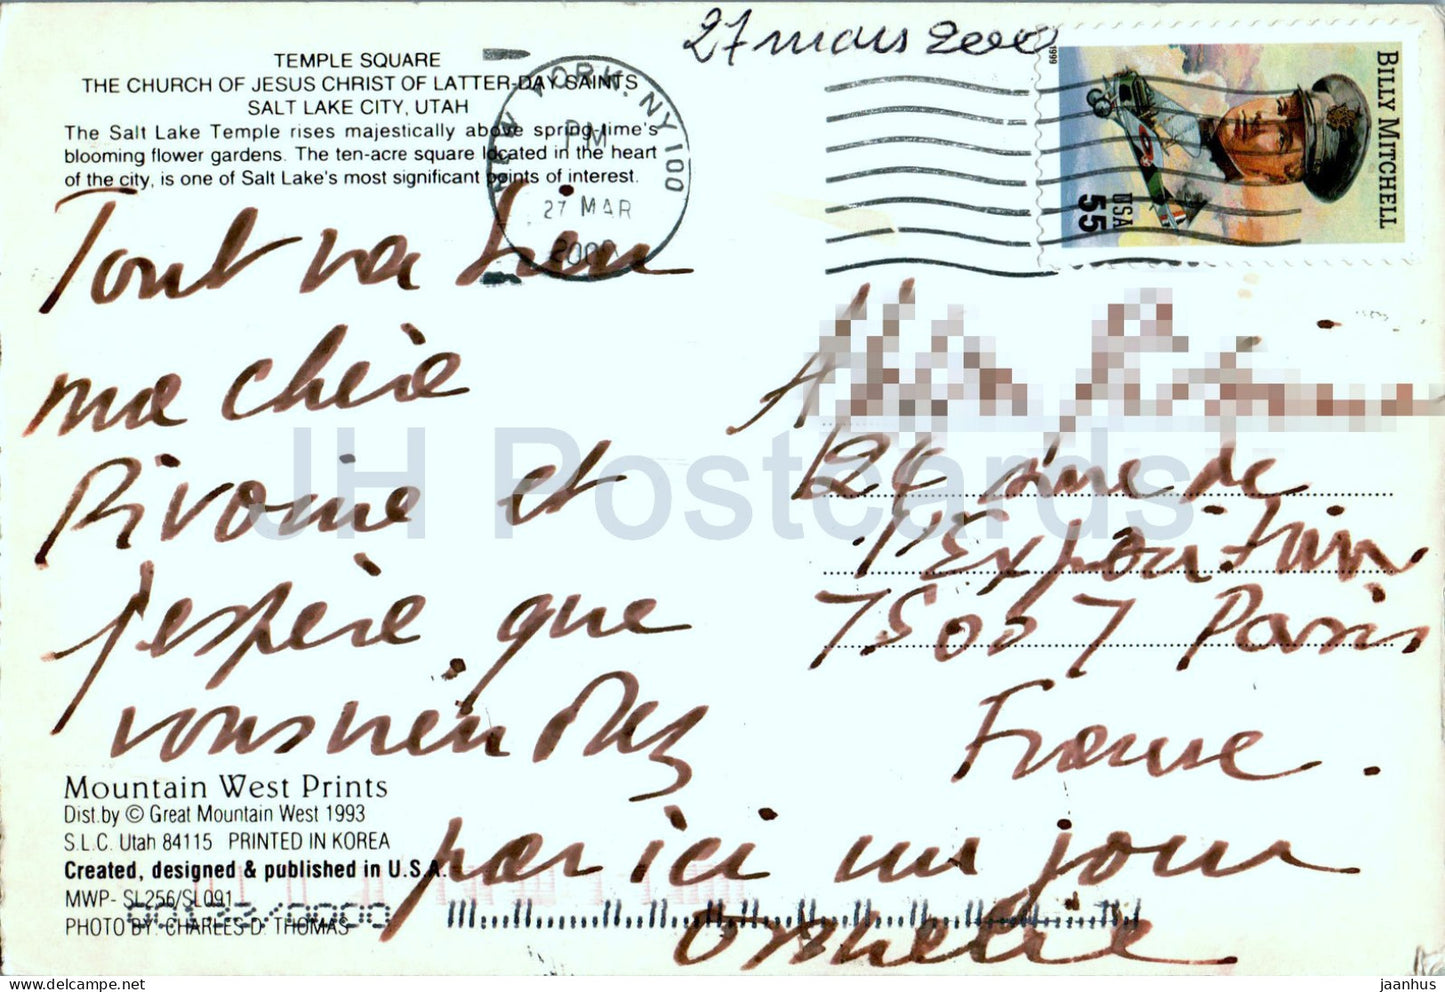 27 mars 2000
TEMPLE SQUARE
THE CHURCH OF JESUS CHRIST OF LATTER-DAY SAINTS
SALT LAKE CITY, UTAH
The Salt Lake Temple rises majestically above spring-time's
blooming flower gardens. The ten-acre square located in the heart
of the city, is one of Salt Lake's most significant points of interest.
NEW YORK, NY 100
PM
27 MAR
2000
1999
BILLY MITCHELL
USA
55
Tout va bien
ma chère
Rivoine et
j'espère que
vous viendrez
par ici un jour
124 rue de
l'Exposition
75007 Paris
France.
Mountain West Prints
Dist.by © Great Mountain West 1993
S.L.C. Utah 84115 PRINTED IN KOREA
Created, designed & published in U.S.A.
MWP- SL256/SL091
PHOTO BY: CHARLES D. THOMAS
JH Postcards
jaanhus
www.delcampe.net